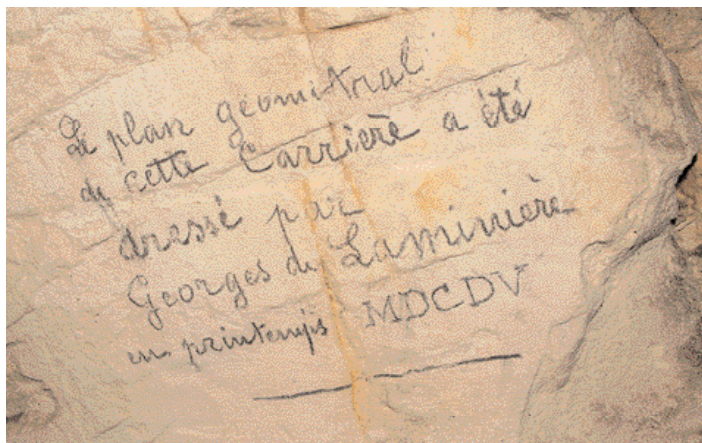 Le plan géomitral
de cette Carrière a été
dressé par
Georges de Laminière
en printemps MDCDV